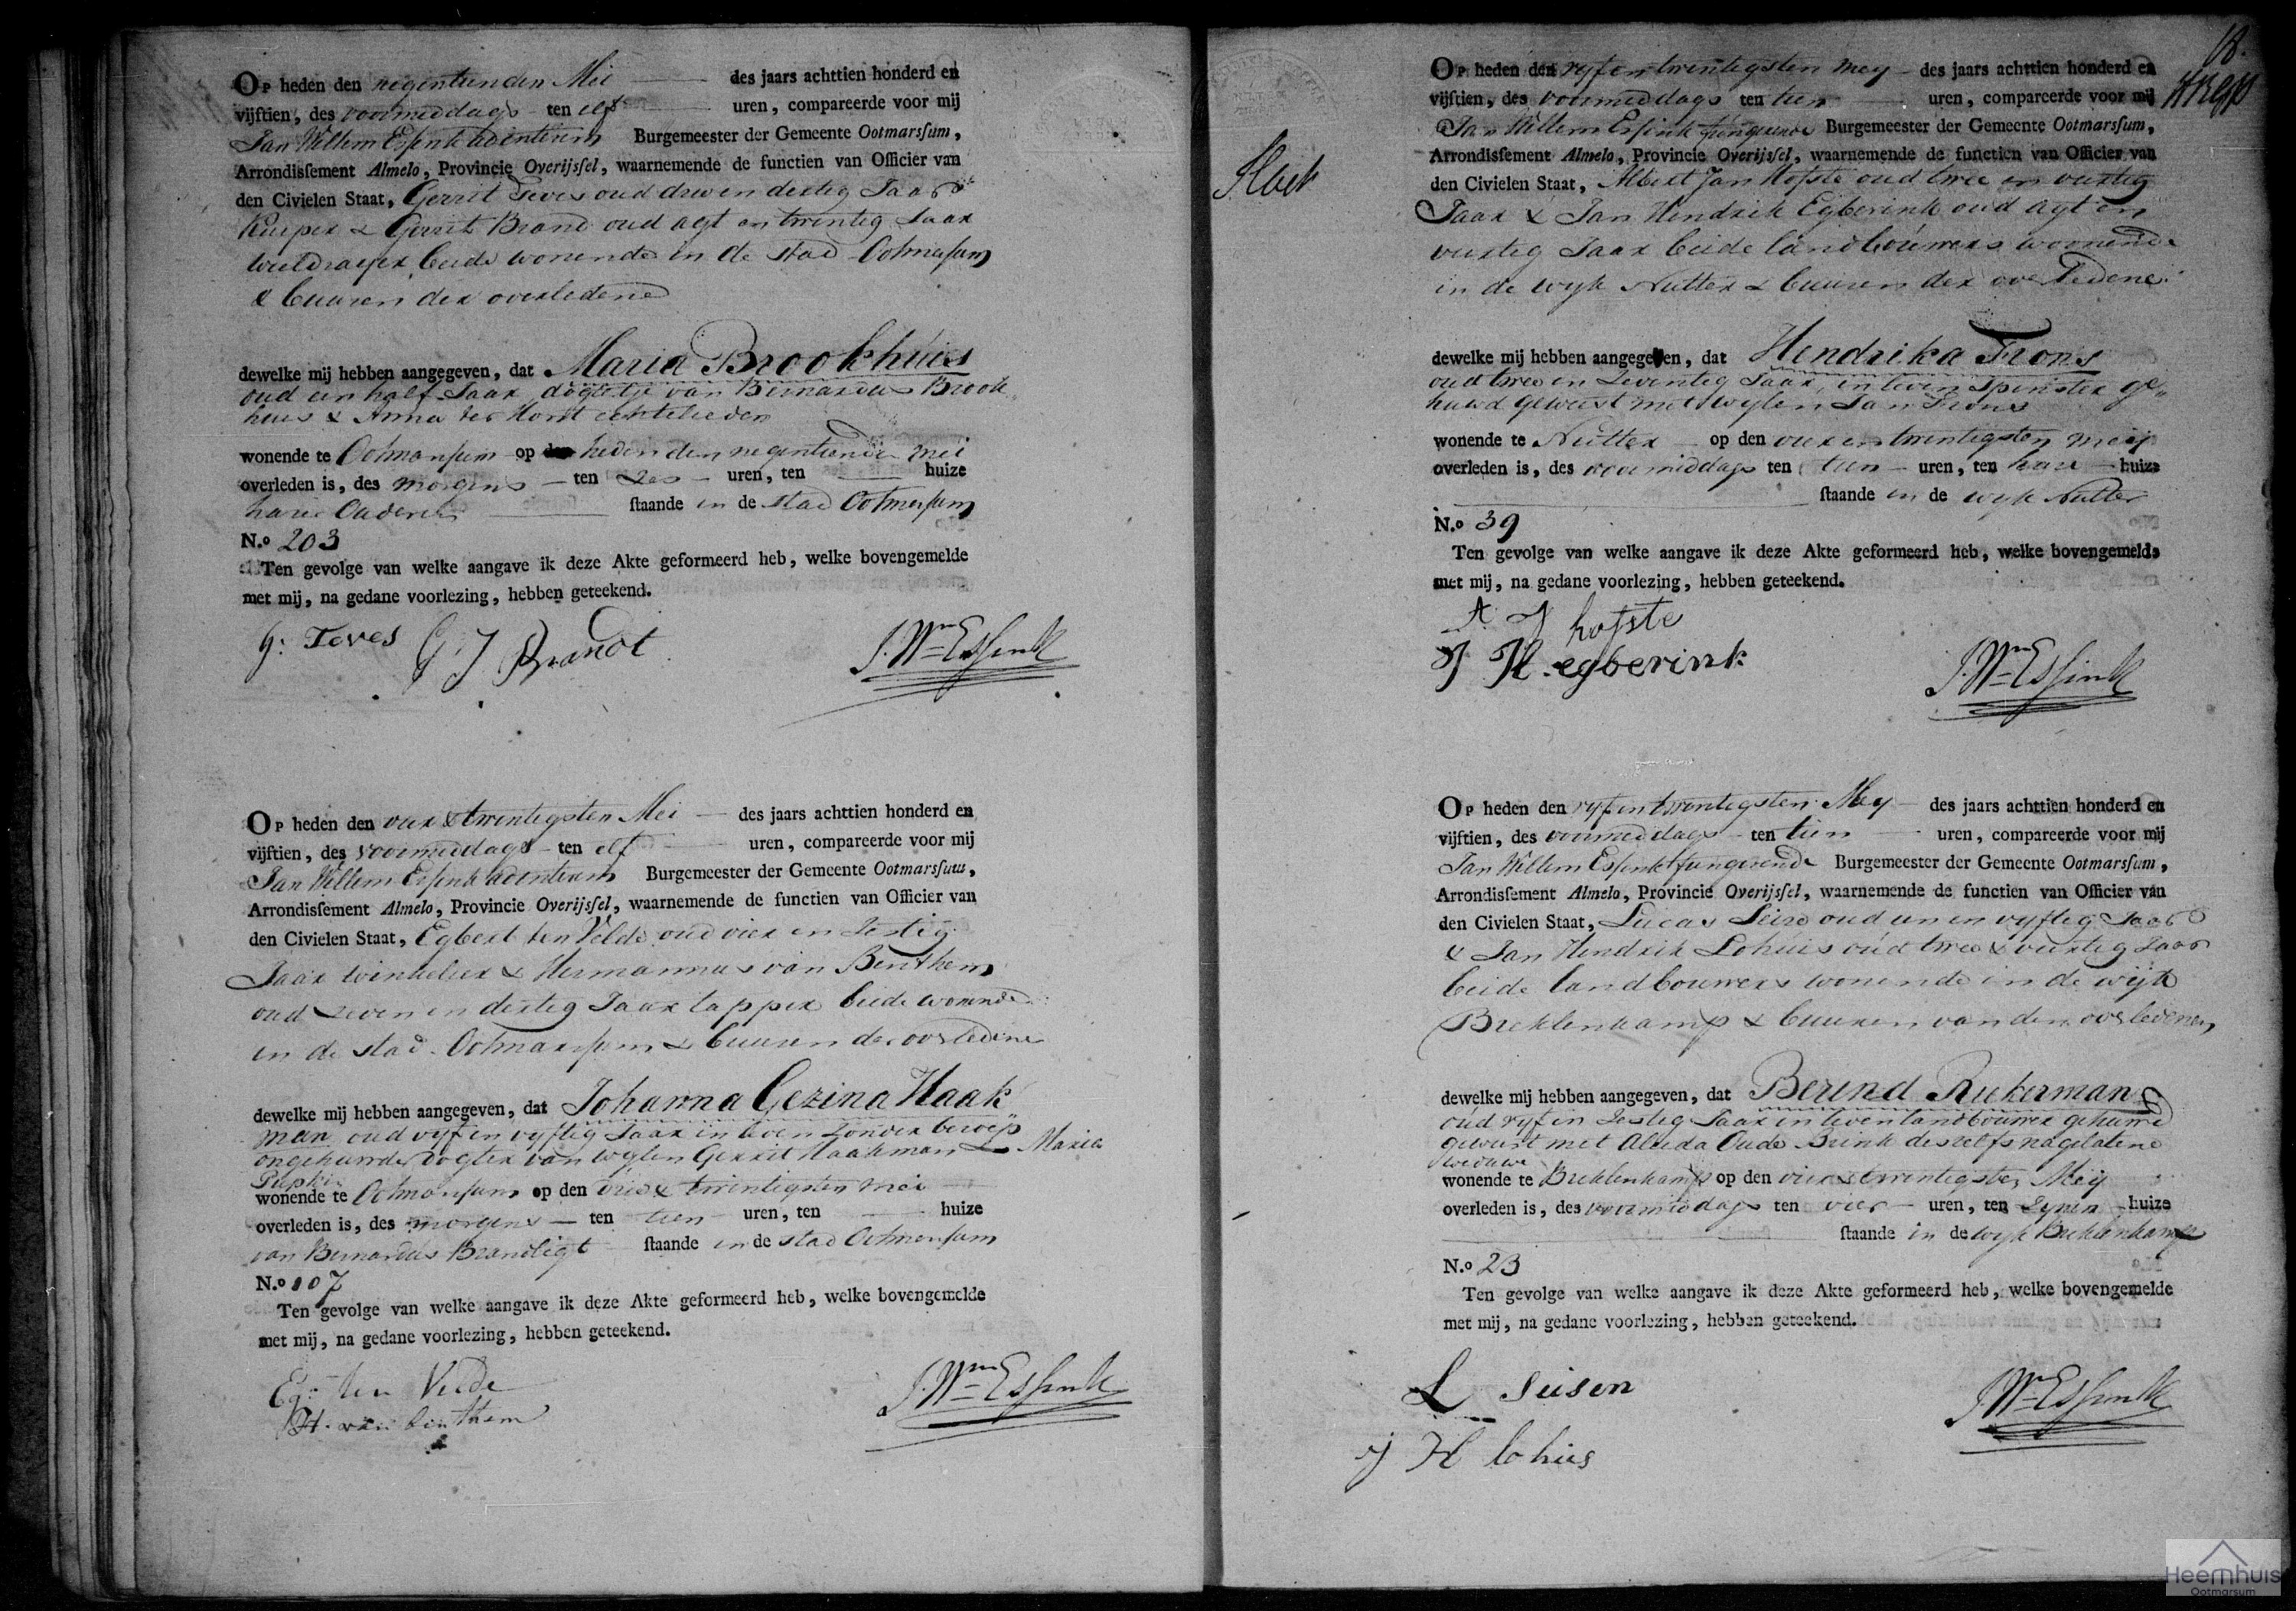 Op heden den negentienden Mei des jaars achttien honderd en
vijftien, des voormiddags ten elf uren, compareerde voor mij
Jan Willem Essink adinterim Burgemeester der Gemeente Ootmarsſum,
Arrondisſement Almelo, Provincie Overijsſel, waarnemende de functien van Officier van
den Civielen Staat, Gerrit Teves oud drie en dertig Jaar
Kuiper & Gerrit Brand oud agt en twintig Jaar
beide wonende in de stad Ootmarsum
& buuren der overledene
dewelke mij hebben aangegeven, dat Maria Brookhuis
oud een half Jaar dogtertje van Bernardus Brook
huis & Anna ter Horst echtelieden
wonende te Ootmarsum op heden den negentiende mei
overleden is, des morgens ten zes uren, ten huize
harer Ouderen staande in de stad Ootmarsum
N.o 203
Ten gevolge van welke aangave ik deze Akte geformeerd heb, welke bovengemelde
met mij, na gedane voorlezing, hebben geteekend.
G: Teves G J Brandt J. Wm Essink
Op heden den vier & twintigsten Mei des jaars achttien honderd en
vijftien, des voormiddags ten elf uren, compareerde voor mij
Jan Willem Essink adinterim Burgemeester der Gemeente Ootmarsſum,
Arrondisſement Almelo, Provincie Overijsſel, waarnemende de functien van Officier van
den Civielen Staat, Egbert ten Velde oud vier en Sestig
Jaar winkelier & Hermannus van Benthem
oud zeven en dertig Jaar tapper beide wonende
in de stad Ootmarsum & buuren der overledene
dewelke mij hebben aangegeven, dat Johanna Gezina Haak
man oud vijf en vyftig Jaar in leven zonder beroep
ongehuwde Dogter van wylen Gerrit Haakman & Maria
wonende te Ootmarsum op den drie & twintigsten mei
overleden is, des morgens ten tien uren, ten huize
van Bernardus Brandligt staande in de stad Ootmarsum
N.o 107
Ten gevolge van welke aangave ik deze Akte geformeerd heb, welke bovengemelde
met mij, na gedane voorlezing, hebben geteekend.
Eg: ten Velde J. Wm Essink
H. van benthem
18.
Op heden den vyf en twintigsten mey des jaars achttien honderd en
vijftien, des voormiddags ten tien uren, compareerde voor mij
Jan Willem Essink fungerende Burgemeester der Gemeente Ootmarsſum,
Arrondisſement Almelo, Provincie Overijsſel, waarnemende de functien van Officier van
den Civielen Staat, Albert Jan Hofste oud twee en veertig
Jaar & Jan Hendrik Egberink oud agt en
veertig Jaar beide landbouwers woonende
in de wyk Nutter & buuren der overledene
dewelke mij hebben aangegeven, dat Hendrika Frons
oud twee en Zeventig Jaar, in leven Spinster ge„
huwd geweest met wylen Jan Frons
wonende te Nutter op den vier en twintigsten meij
overleden is, des voormiddags ten tien uren, ten hare huize
staande in de wyk Nutter
N.o 39
Ten gevolge van welke aangave ik deze Akte geformeerd heb, welke bovengemelde
met mij, na gedane voorlezing, hebben geteekend.
A J hofste
J H egberink J. Wm Essink
Op heden den vyf en twintigsten Mey des jaars achttien honderd en
vijftien, des voormiddags ten tien uren, compareerde voor mij
Jan Willem Essink fungerende Burgemeester der Gemeente Ootmarsſum,
Arrondisſement Almelo, Provincie Overijsſel, waarnemende de functien van Officier van
den Civielen Staat, Lucas oud een en vyftig Jaar
& Jan Hendrik Lohuis oud twee & veertig Jaar
beide landbouwers wonende in de wijk
Breklenkamp & buuren van den overledenen
dewelke mij hebben aangegeven, dat Berend Reekerman
oud vyf en Sestig Jaar in leven landbouwer gehuwd
geweest met Aleida Oude Brink deszelfs nagelatene
weduwe
wonende te Breklenkamp op den vier & twintigsten Mey
overleden is, des voormiddags ten vier uren, ten zynen huize
staande in de wyk Breklenkamp
N.o 23
Ten gevolge van welke aangave ik deze Akte geformeerd heb, welke bovengemelde
met mij, na gedane voorlezing, hebben geteekend.
L Seisen J. Wm Essink
J H lohuis
Heemhuis
Ootmarsum